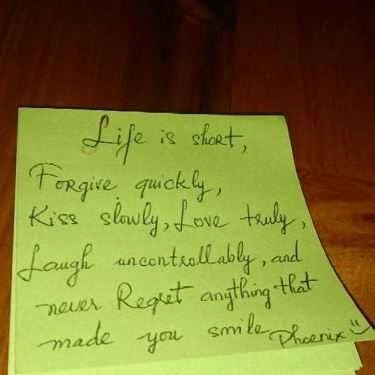 Life is short,
Forgive quickly,
Kiss slowly, Love truly,
Laugh uncontrollably, and
never Regret anything that
made you smile Phoenix